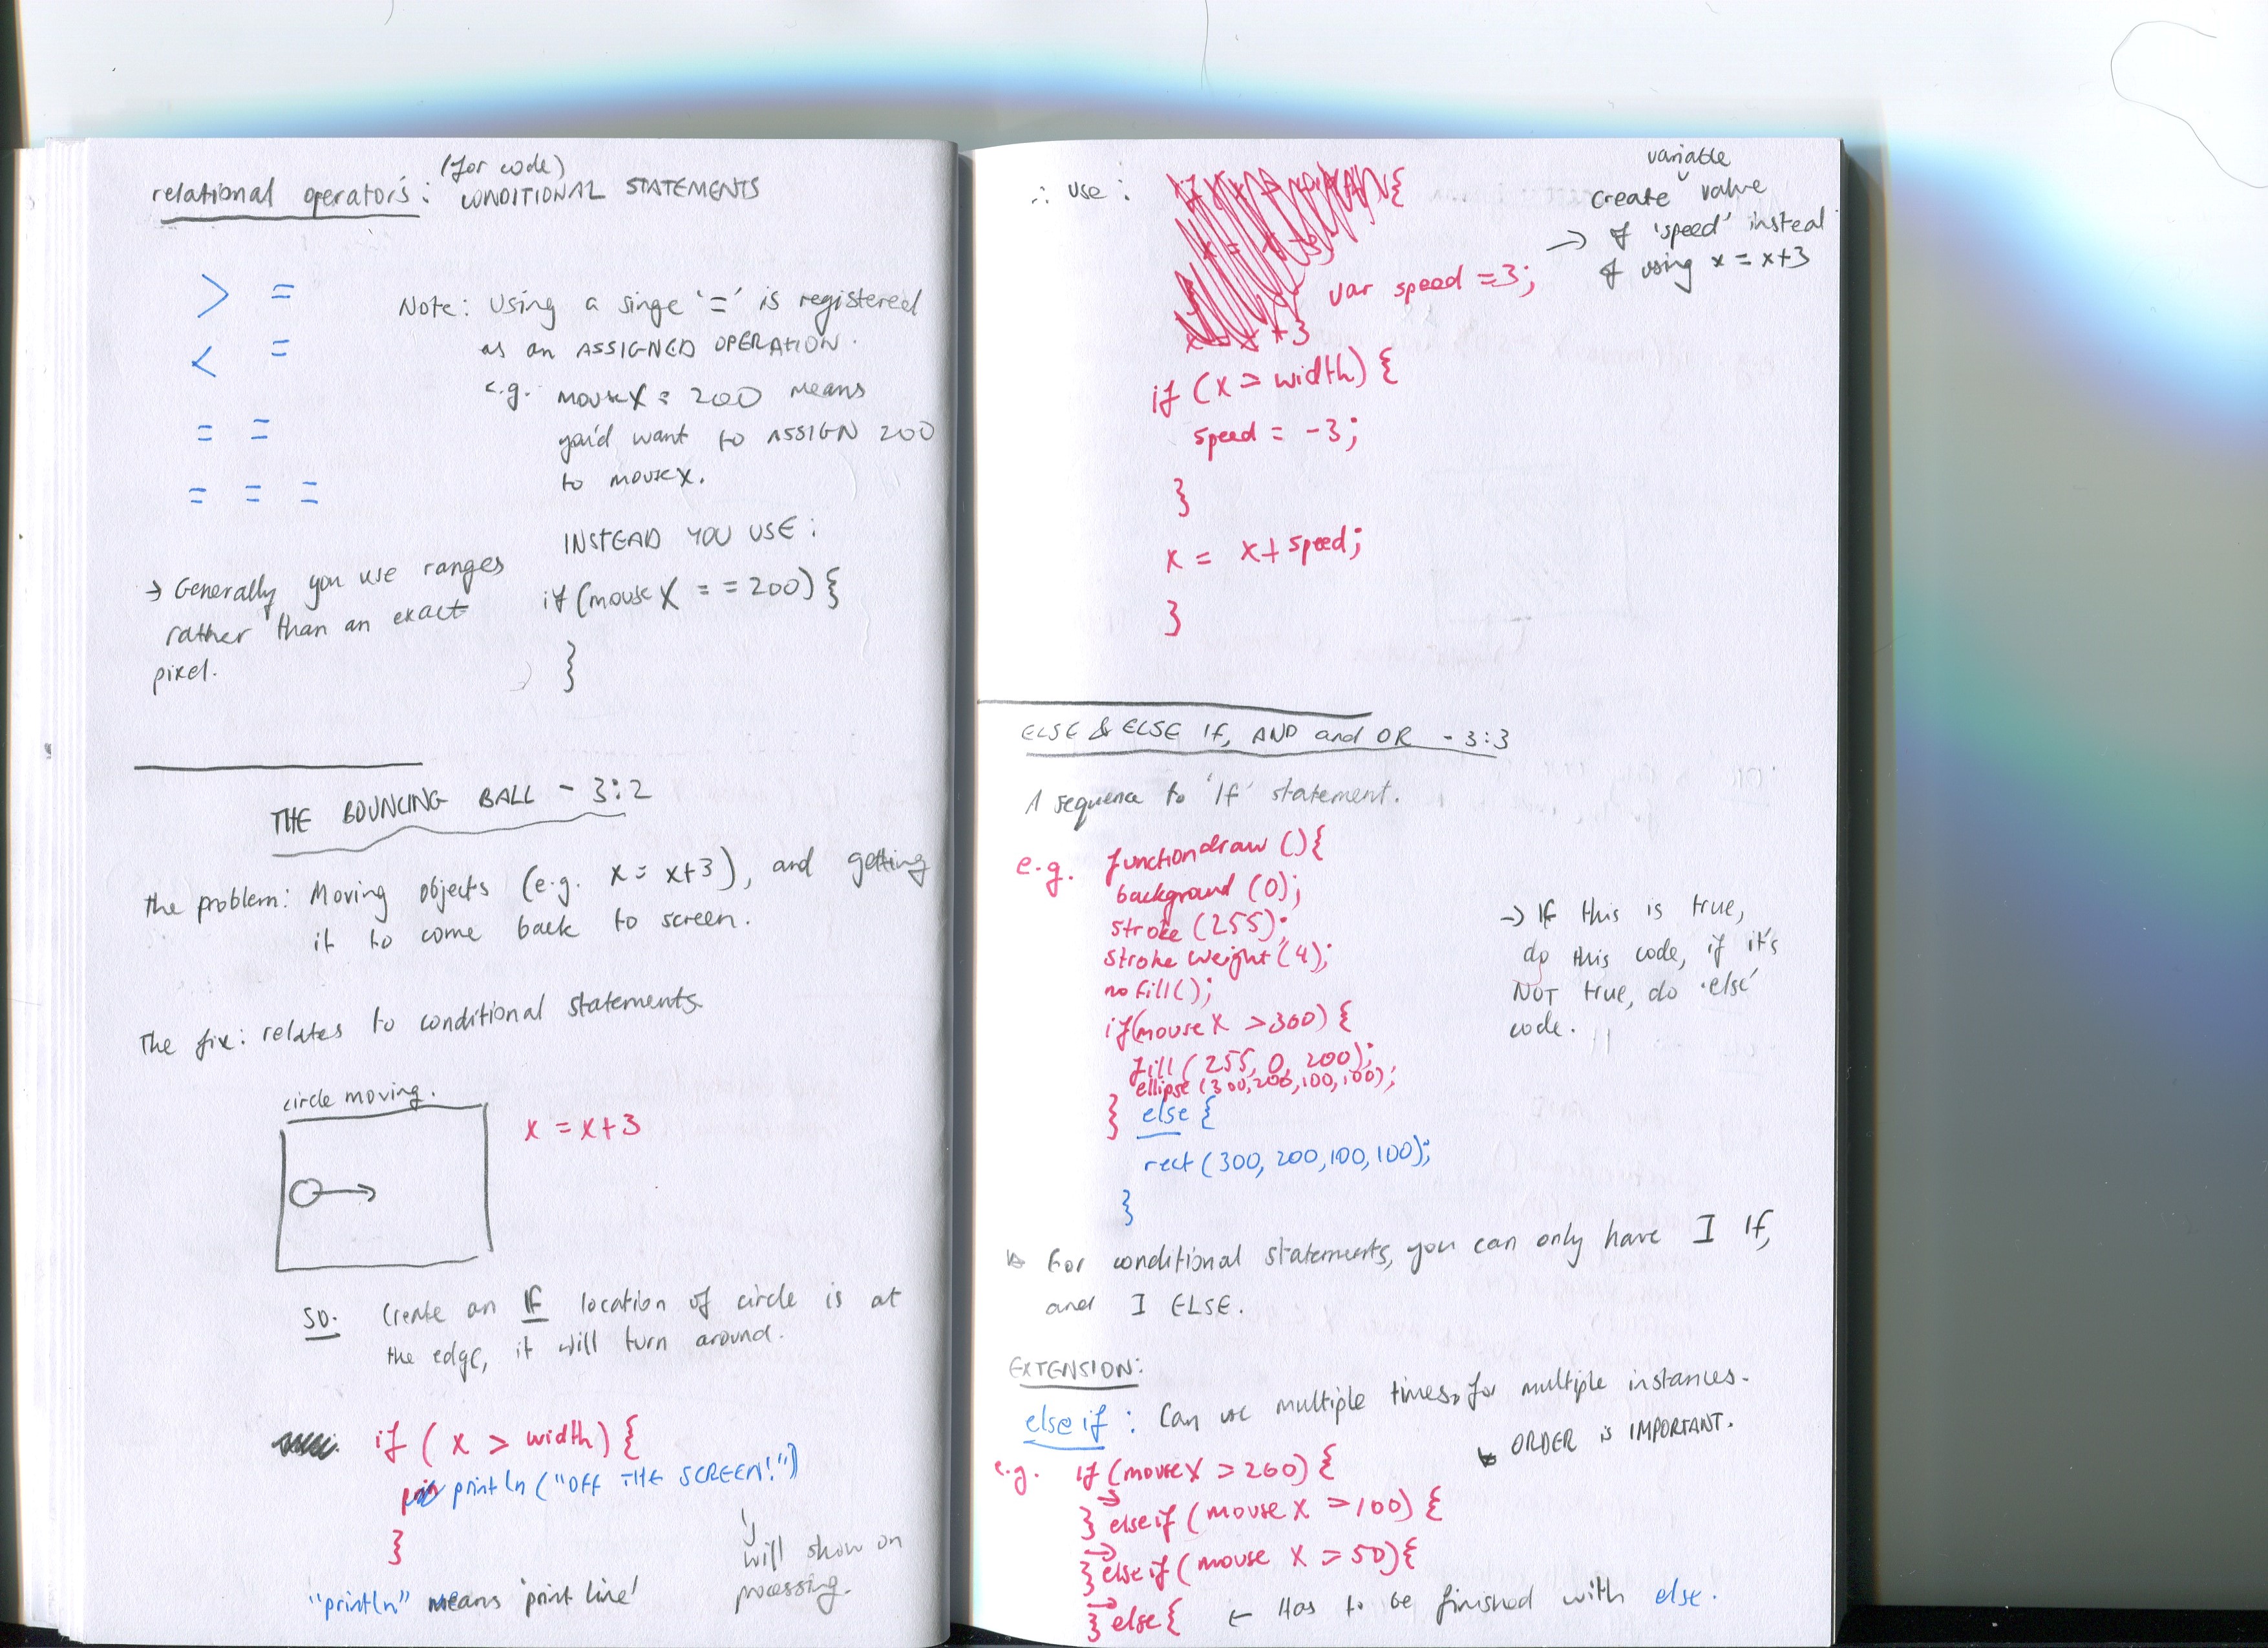 (for code)
relational operators: CONDITIONAL STATEMENTS
> =
< =
= =
= = =
Note: Using a singe '=' is registered
as an ASSIGNED OPERATION.
e.g. mouseX = 200 means
you'd want to ASSIGN 200
to mouseX.
INSTEAD YOU USE:
if (mouseX = = 200) {
}
→ Generally you use ranges
rather than an exact
pixel.
THE BOUNCING BALL - 3:2
the problem: Moving objects (e.g. x = x+3), and getting
it to come back to screen.
The fix: relates to conditional statements.
circle moving.
x = x+3
SO. Create an IF location of circle is at
the edge, it will turn around.
if ( x > width) {
println ("OFF THE SCREEN!")
}
will show on
processing.
"println" means 'print line'
∴ use:
{
+3
var speed = 3;
variable
create value
→ of 'speed' instead
of using x = x+3
if (x > width) {
speed = -3;
}
x = x + speed;
}
ELSE & ELSE If, AND and OR - 3:3
A sequence to 'If' statement.
e.g. function draw () {
background (0);
stroke (255);
stroke weight (4);
no fill();
if(mouse X > 300) {
fill (255, 0, 200);
ellipse (300,200,100,100);
} else {
rect (300, 200, 100, 100);
}
→ If this is true,
do this code, if it's
NOT true, do 'else'
code.
For conditional statements, you can only have I If,
and I ELSE.
EXTENSION:
else if : Can use multiple times, for multiple instances.
ORDER is IMPORTANT.
e.g. if (mouse X > 200) {
} else if ( mouse X > 100) {
} else if ( mouse X > 50) {
} else { ← Has to be finished with else.